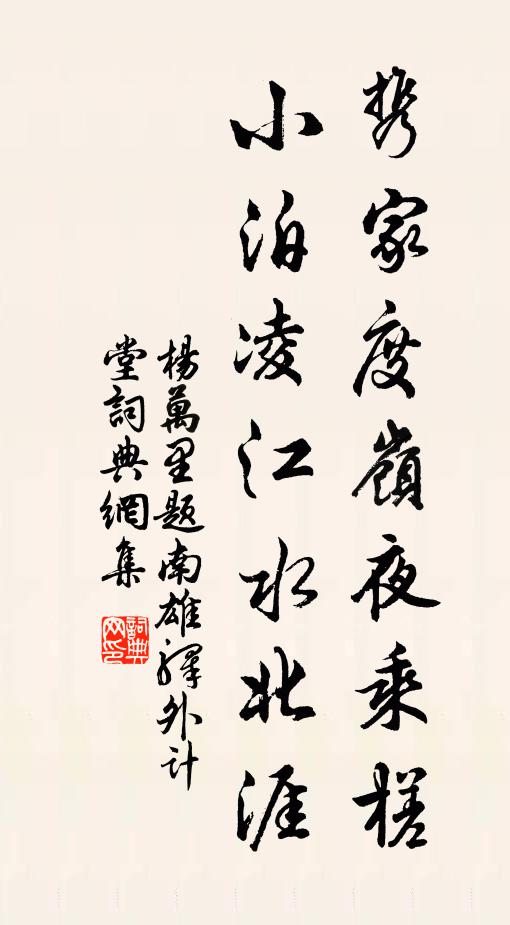 携家度嶺夜乘槎
小泊凌江水北涯
楊萬里題南雄驛外計
堂詞典網集
詞典
网印